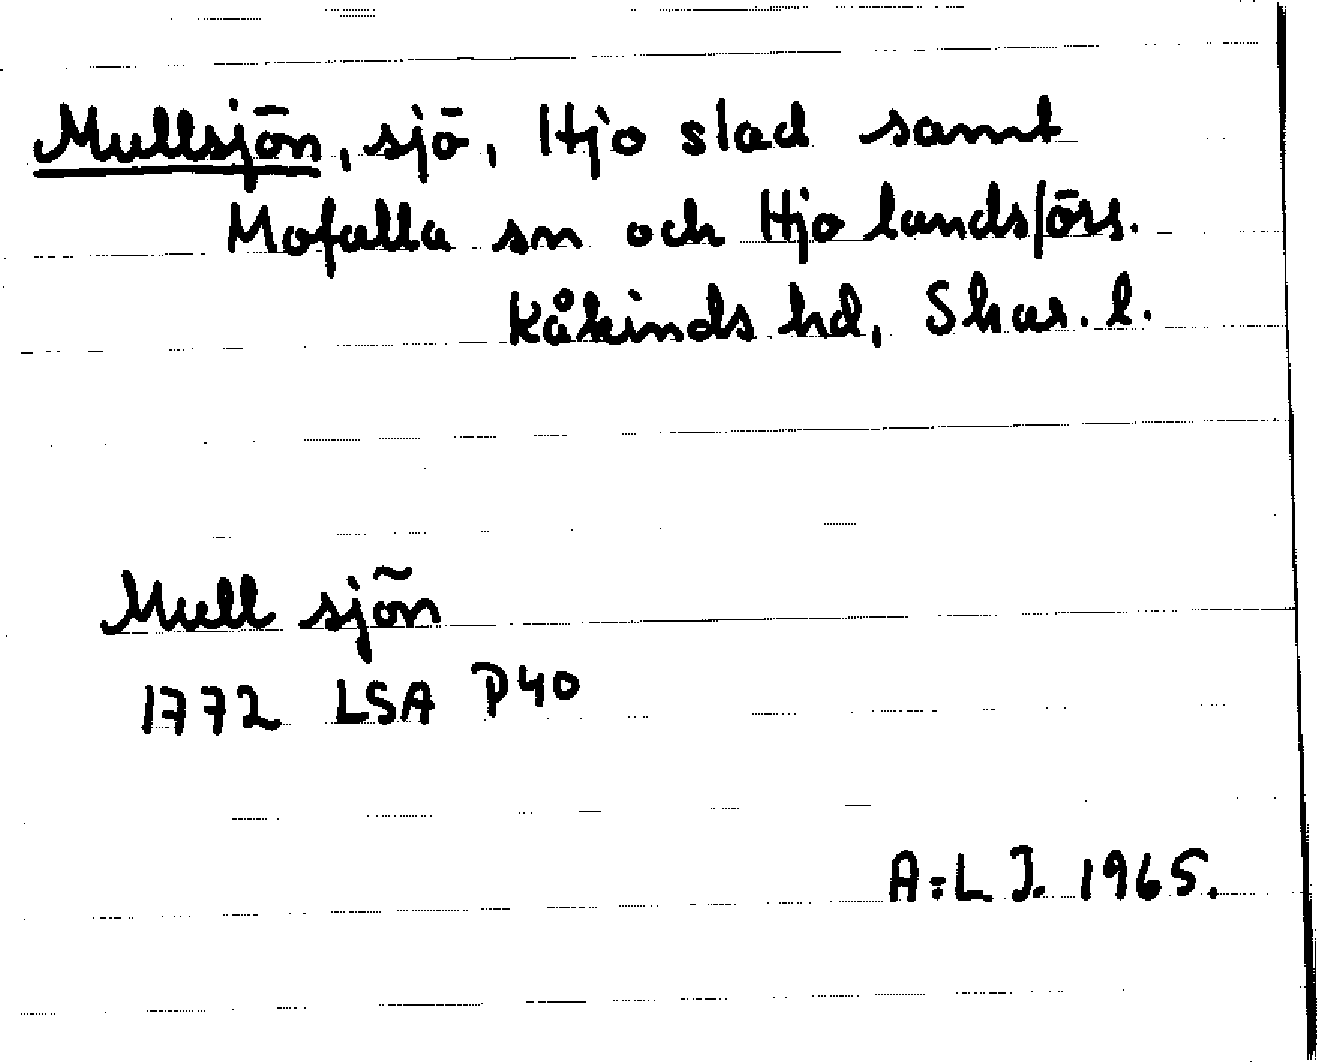 Mullsjön, sjö, Hjo stad samt
Mofalla sn och Hjo landsförs.
Kåkinds hd, Skar. l.
Mull sjön
1772 LSA P40
A:L J. 1965.